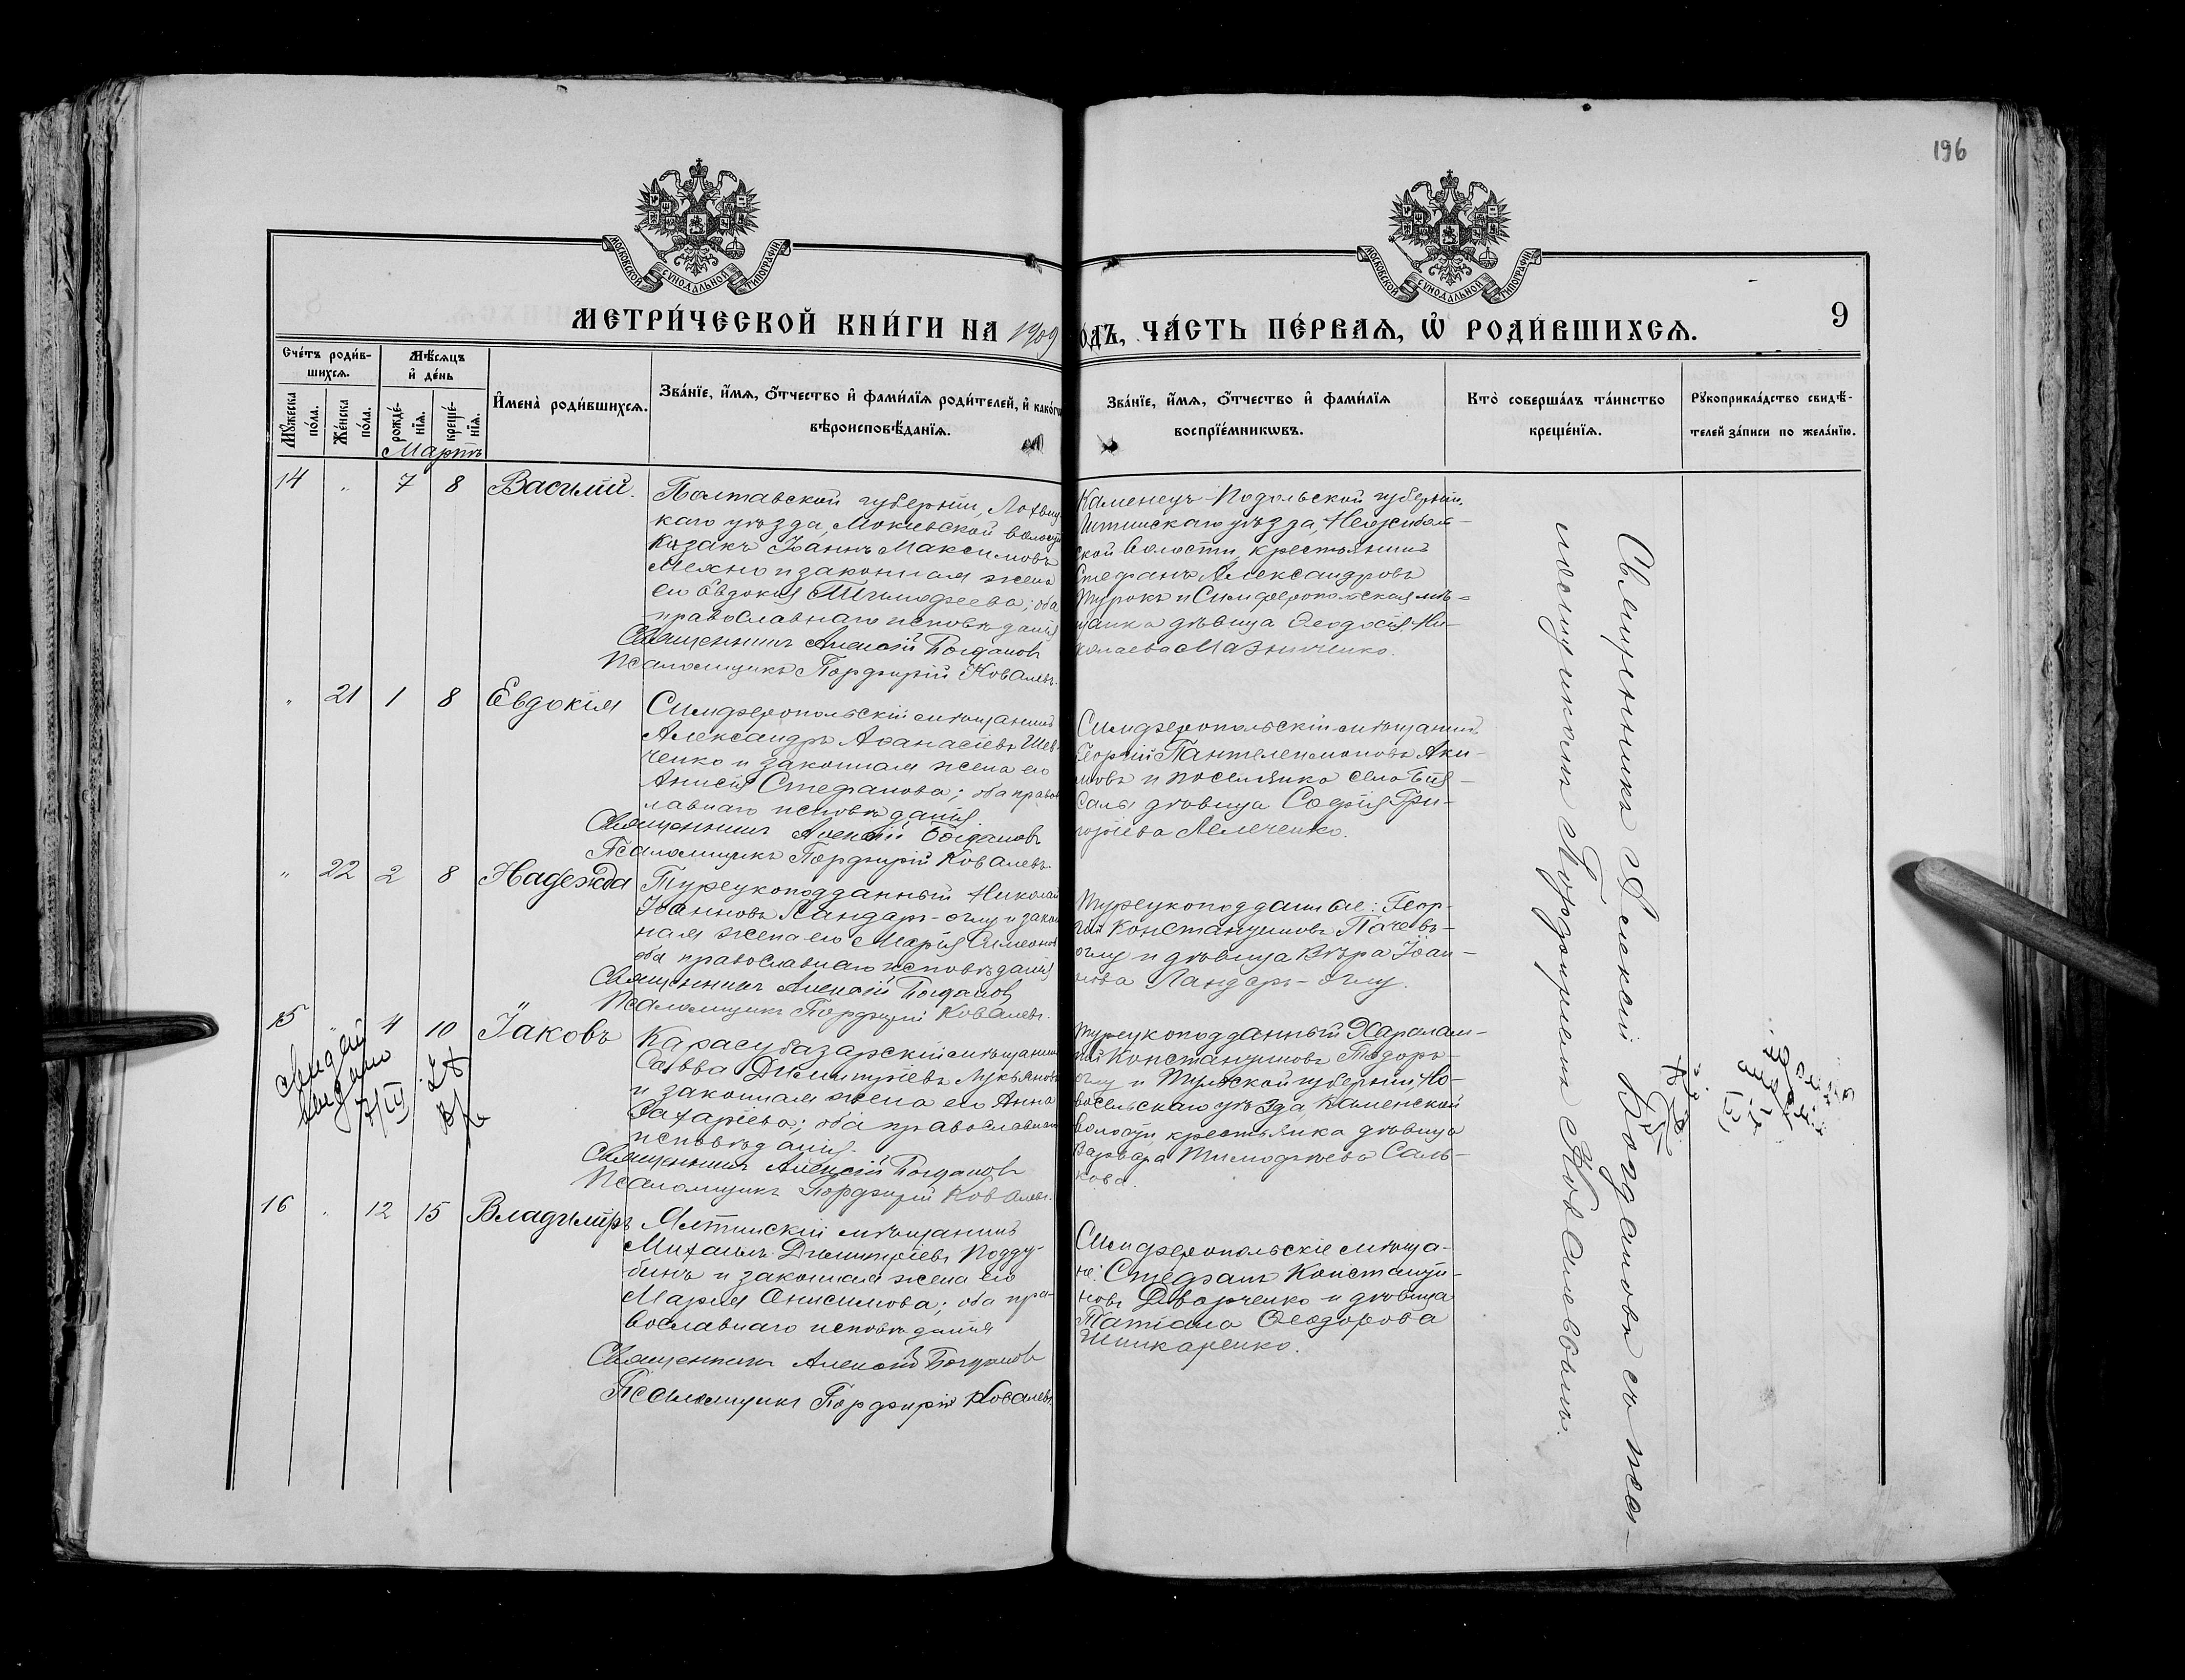 196
МОСКОВСКОЙ СѴНОДАЛЬНОЙ ТИПОГРАФІИ
МОСКОВСКОЙ СѴНОДАЛЬНОЙ ТИПОГРАФІИ
МЕТРИ́ЧЕСКОЙ КНИ́ГИ НА 1909
ОДЪ, ЧА́СТЬ ПЕ́РВАѦ, Ѡ РОДИ́ВШИХСѦ.
9
Сче́тъ роди́в-
шихсѧ.
Мꙋ́жеска
по́ла.
Же́нска
по́ла.
Мѣ́сѧцъ
и де́нь
рожде́-
нїѧ.
креще́-
нїѧ.
Имена̀ роди́вшихсѧ.
Зва́нїе, и́мѧ, о́тчество и фами́лїѧ роди́телей, и како́гѡ
вѣроисповѣ́данїѧ.
Зва́нїе, и́мѧ, о́тчество и фами́лїѧ
воспрїе́мникѡвъ.
Кто̀ соверша́лъ та́инство
креще́нїѧ.
Рꙋкоприкла́дство свидѣ́-
телей за́писи по жела́нїю.
Мартъ
14 " 7 8 Василій.
Полтавской губерніи, Лохвиц
каго уѣзда, Мокіевской волости
Казакъ Іоаннъ Максимовъ
Мехно и законная жена
его Евдокія Тимофеева; оба
православнаго исповѣданія
Священникъ Алексій Богдановъ
Псаломщикъ Порфирій Ковалевъ.
Каменецъ-Подольской губерніи,
Литинскаго уѣзда,
ской волости, крестьянинъ
Стефанъ Александровъ
Турокъ и Симферопольская мѣ-
щанка дѣвица Ѳеодосія Ни-
колаева Мазниченко.
" 21 1 8 Евдокія
Симферопольскій мѣщанинъ
Александръ Аѳанасіевъ Шев-
ченко и законная жена его
Анисія Стефанова; оба правос
лавнаго исповѣданія.
Священникъ Алексій Богдановъ
Псаломщикъ Порфирій Ковалевъ.
Симферопольскій мѣщанинъ
Георгій Пантелеимоновъ Аки-
мовъ и поселянка села Бія-
Салы дѣвица Софія Гри-
горіева
" 22 2 8 Надежда
Турецкоподданный Николай
Іоанновъ Ландаръ-оглу и закон
ная жена его Марія Симеонов
оба православнаго исповѣданія
Священникъ Алексій Богдановъ
Псаломщикъ Порфирій Ковалевъ.
Турецкоподданные: Геор-
гій Константиновъ
оглу и дѣвица Вѣра Іоан-
нова Ландаръ-оглу.
15 " 4 10 Іаковъ
Карасубазарскій мѣщанинъ
Савва Димитріевъ Лукьяновъ
и законная жена его Анна
Захаріева; оба православнаго
исповѣданія.
Священникъ Алексій Богдановъ
Псаломщикъ Порфирій Ковалевъ.
Турецкоподданный Харалам-
пій Константиновъ Тодоръ-
оглу и Тульской губерніи Но-
восельскаго уѣзда Каменской
волости крестьянка дѣвица
Варвара Тимофеева Саль-
кова.
16 " 12 15 Владиміръ
Ялтинскій мѣщанинъ
Михаилъ Димитріевъ Подду-
бинъ и законная жена его
Марія Онисимова; оба пра-
вославнаго исповѣданія
Священникъ Алексій Богдановъ
Псаломщикъ Порфирій Ковалевъ.
Симферопольскіе мѣща-
не: Стефанъ Константи-
новъ Дварченко и дѣвица
Татіана Ѳеодорова
Шинкаренко.
Священникъ Алексій Богдановъ съ пса-
ломщикомъ Порфиріемъ Ковалевымъ.